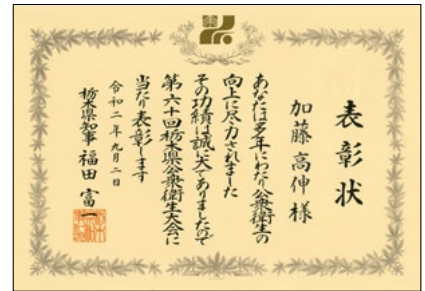 表彰状
加藤高伸様
あなたは多年にわたり公衆衛生の
向上に尽力されました
その功績は誠に大でありましたので
第六十回栃木県公衆衛生大会に
当たり表彰します
令和二年九月二日
栃木県知事 福田富一